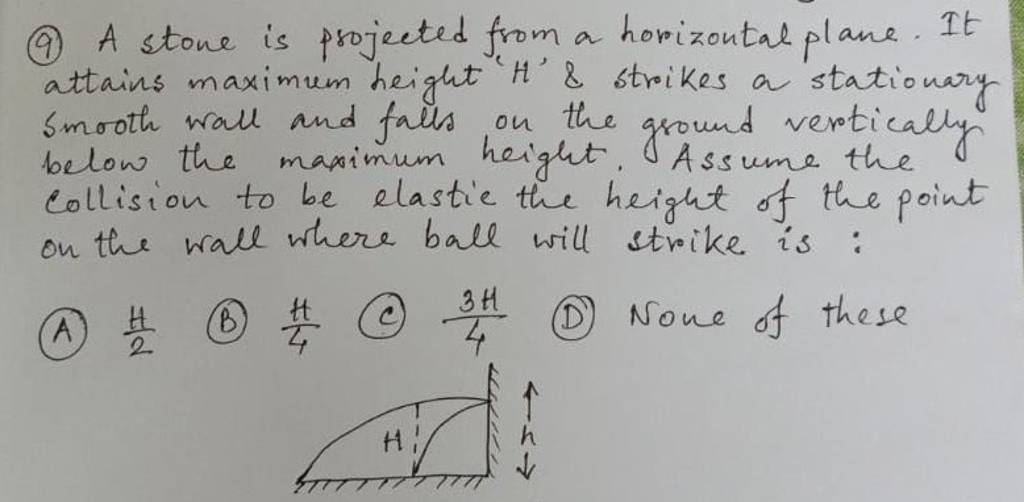 (9) A stone is projected from a horizontal plane. It
attains maximum height 'H' & strikes a stationary
smooth wall and falls on the ground vertically
below the maximum height. Assume the
Collision to be elastic the height of the point
on the wall where ball will strike is :
(A) H/2 (B) H/4 (C) 3H/4 (D) None of these
H h